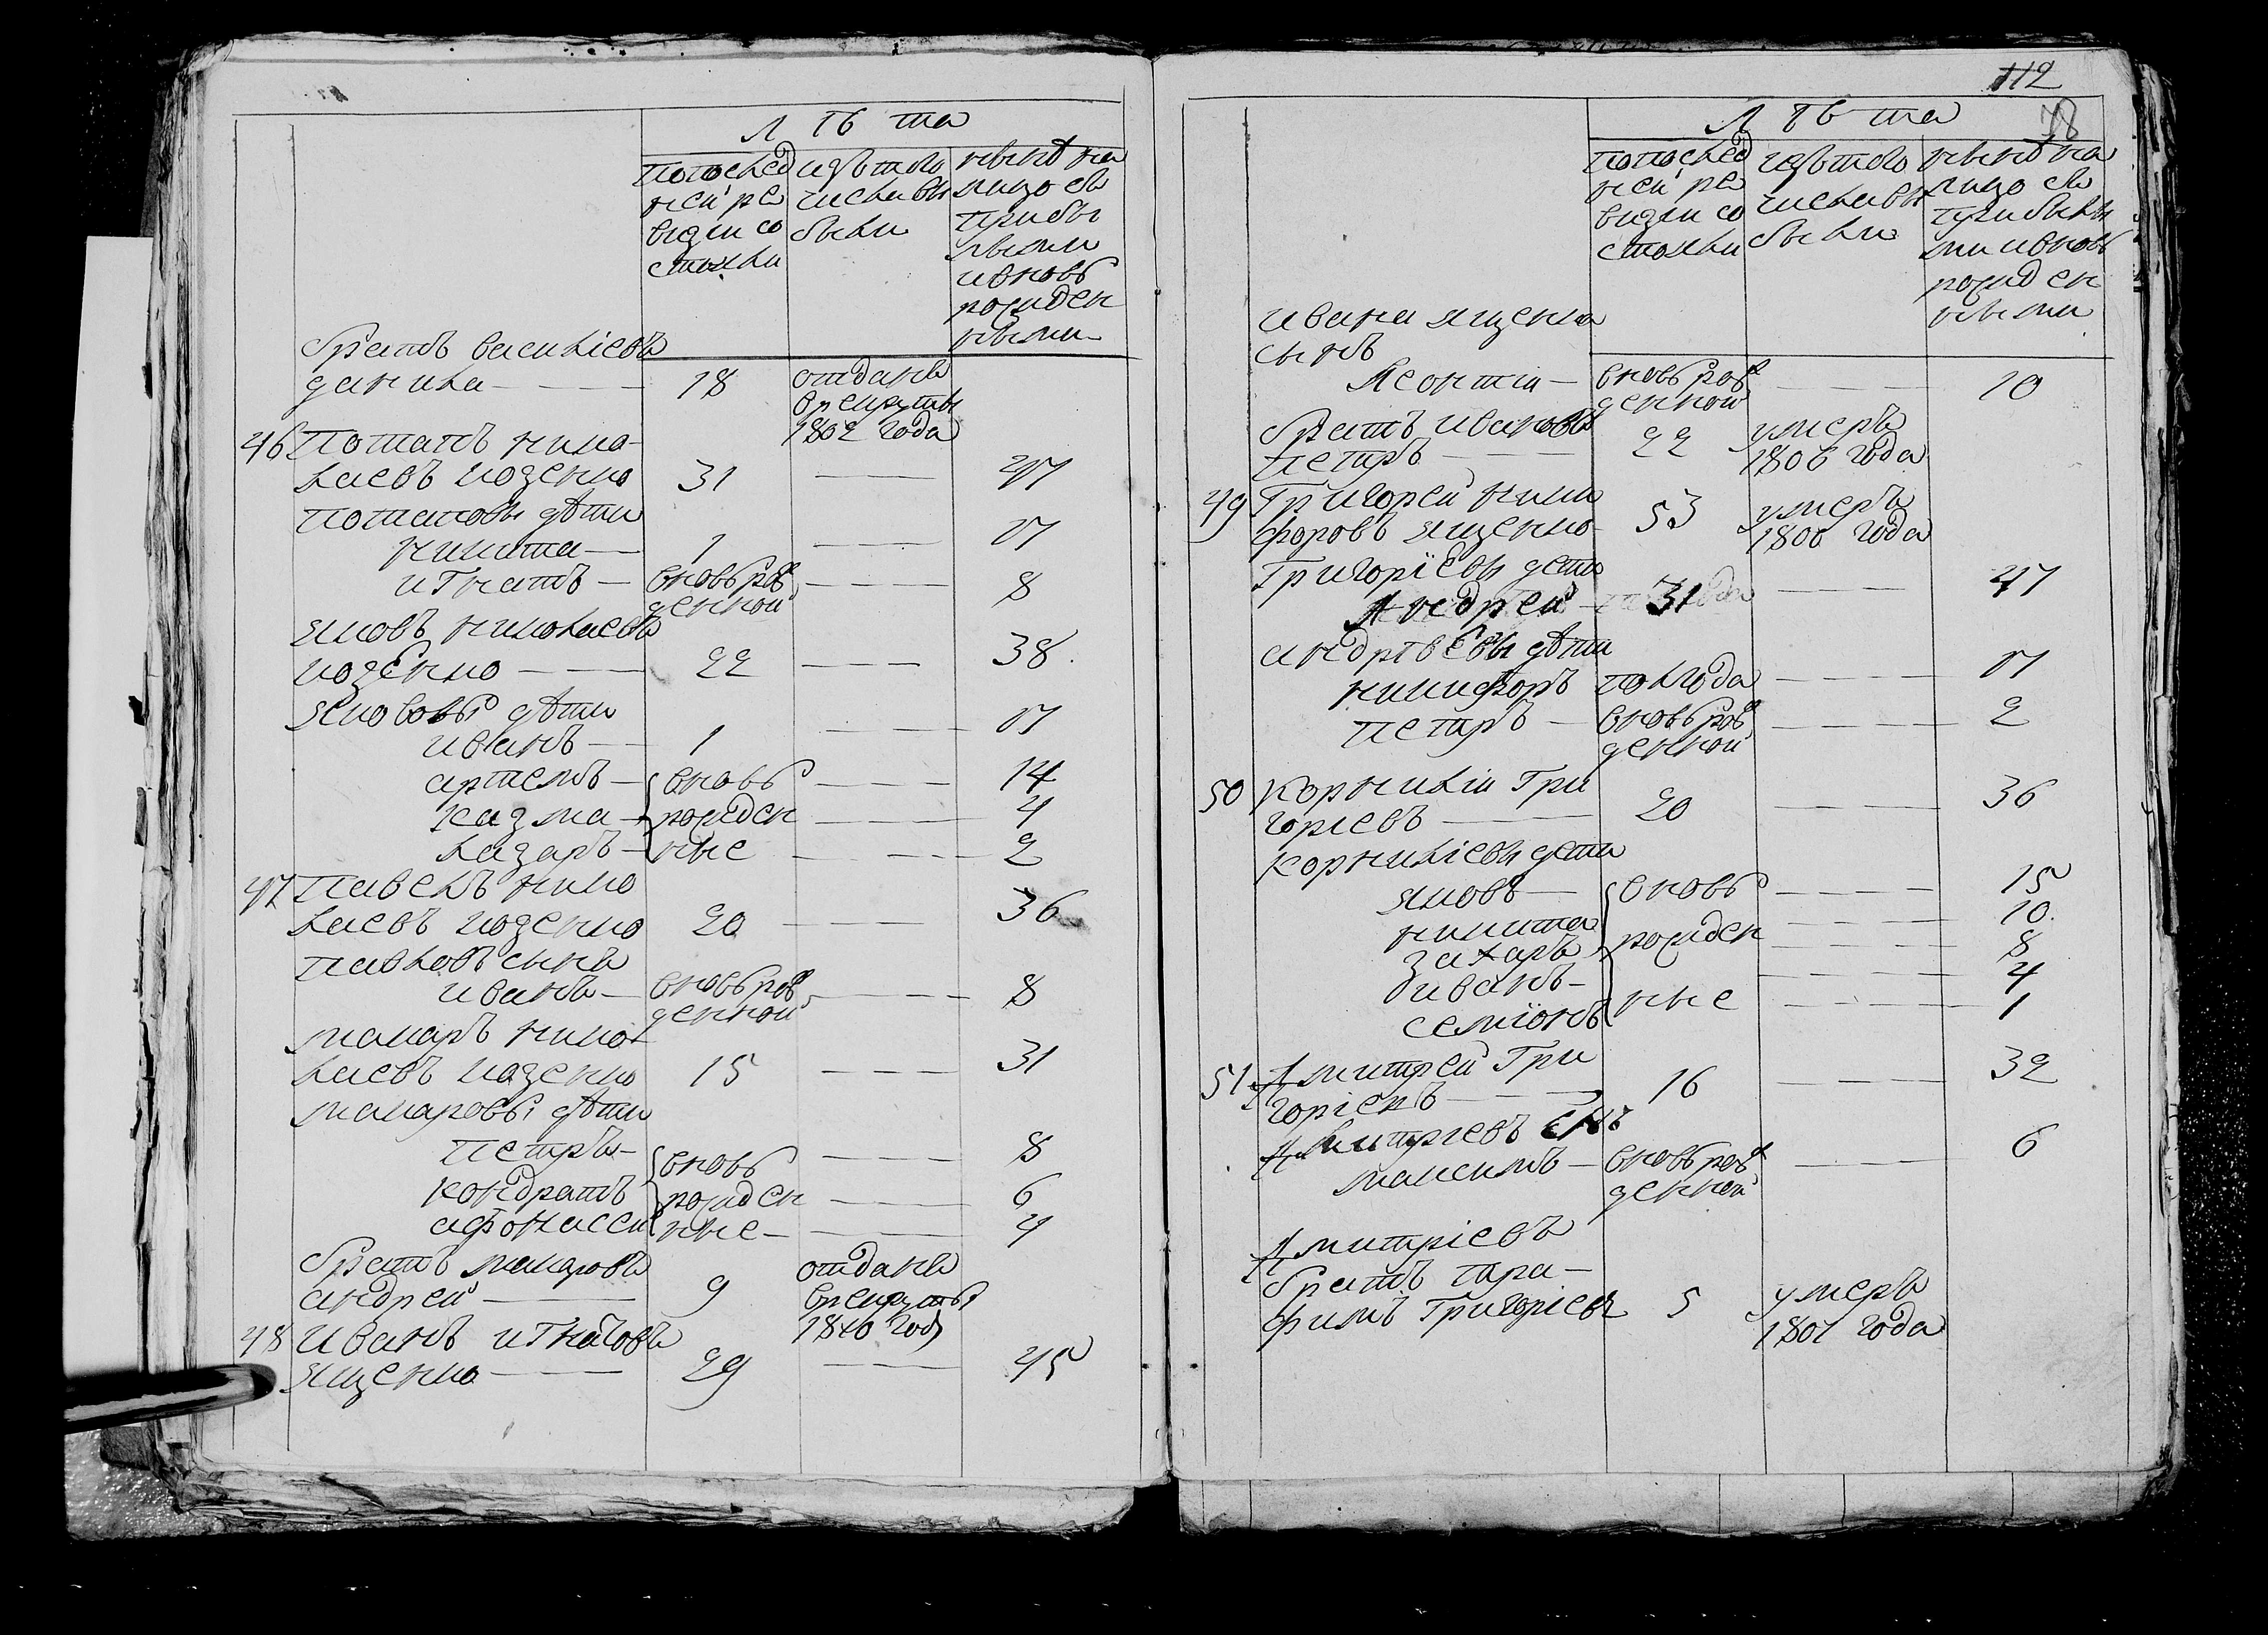 Лѣта
попослед
ней ре
визіи со
стояли
изътого
числавы
были
нынѣ на
лицо съ
прибы
лыми
ивновь
рожден
ными
братъ василіевъ
данила 18 отданъ
врекруты
1802 года
46 Потапъ нико
лаевъ козенко 31 47
Потаповы дѣти
никита 1 17
игнатъ вновь рож
денной 8
яковъ николаевъ
козенко 22 38
яковов&#1099; дѣти
иванъ 1 17
артемъ вновь 14
казма рожден 4
лазаръ ные 2
47 Павелъ нико
лаевъ козенко 20 36
павловъ сынъ
иванъ вновь рож
денной 8
макаръ нико
лаевъ козенко 15 31
макаровы дѣти
петръ вновь 8
кондратъ рожден 6
афонасеи ные 4
братъ макаровъ
андрей 9 отданъ
врекруты
1810 год
48 Иванъ игнатовъ
ященко 29 45
112
78
Лѣта
попослед
ней ре
визіи со
стояли
изътого
числавы
были
нынѣ на
лицо съ
прибылы
ми ивновь
рожден
ными
ивана ященка
сынъ
Леонтіи вновь рож
денной 10
братъ ивановъ
петръ 22 умеръ
1806 года
49 Григорей ники
форовъ ященко 53 умеръ
1806 года
Григоріевы дети
Андрей 31 47
андрѣевы дѣти
никифоръ полгода 17
петръ вновь рож
денной 2
50 Корниліи Гри
горіевъ 20 36
корниліевы дети
яковъ вновь 15
никита 10
захаръ рожден 8
иванъ 4
семіонъ ные 1
51 Дмитрей Гри
горіевъ 16 32
Дмитріевъ снъ
максимъ вновь рож
денной 6
Дмитріевъ
братъ тра
фимъ Григоріевъ 5 умеръ
1801 года